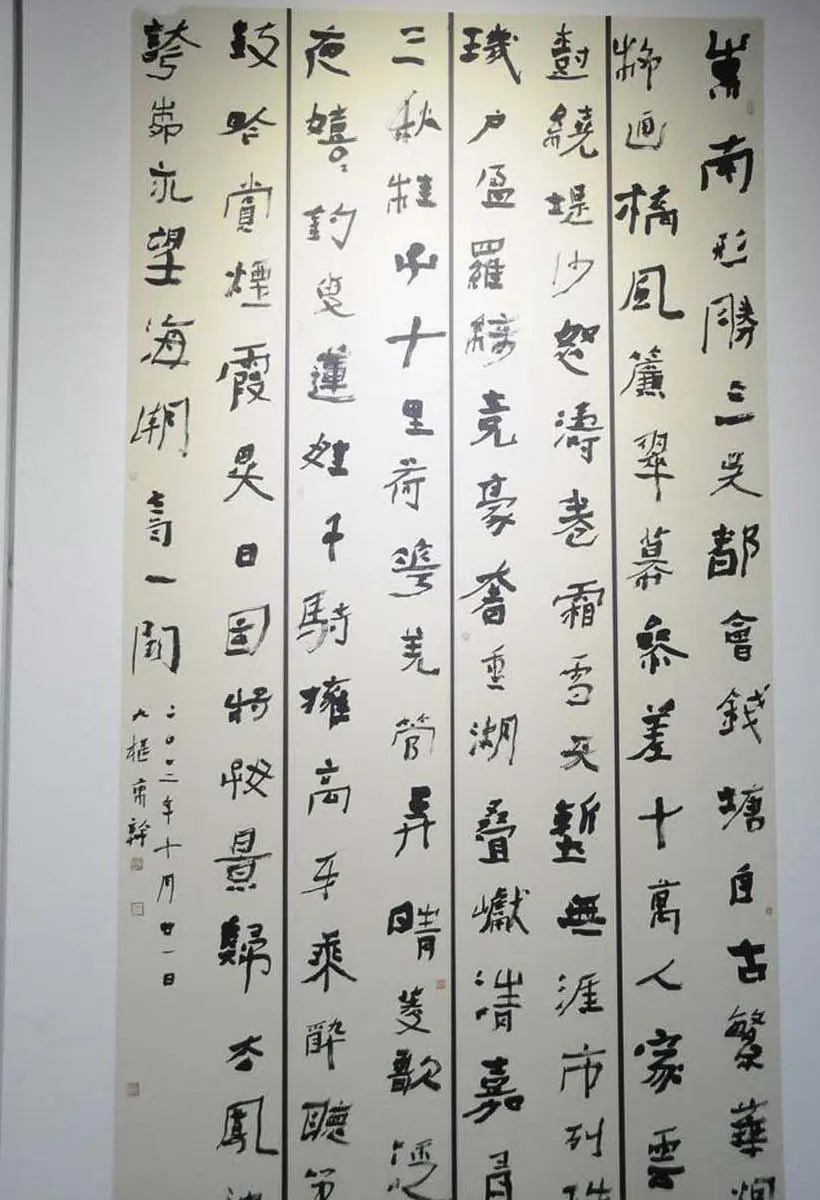 東南形勝三吳都會錢塘自古繁華烟
柳画橋風簾翠幕參差十萬人家雲
樹繞堤沙怒濤卷霜雪天塹無涯市列珠
璣户盈羅綺競豪奢重湖疊巘清嘉有
三秋桂子十里荷花羌管弄晴菱歌泛
夜嬉〻釣叟蓮娃千騎擁高牙乘醉聽簫
鼓吟賞煙霞異日圖將好景歸去鳳池
誇柳永望海潮詞一闋
二〇〇三年十月廿一日